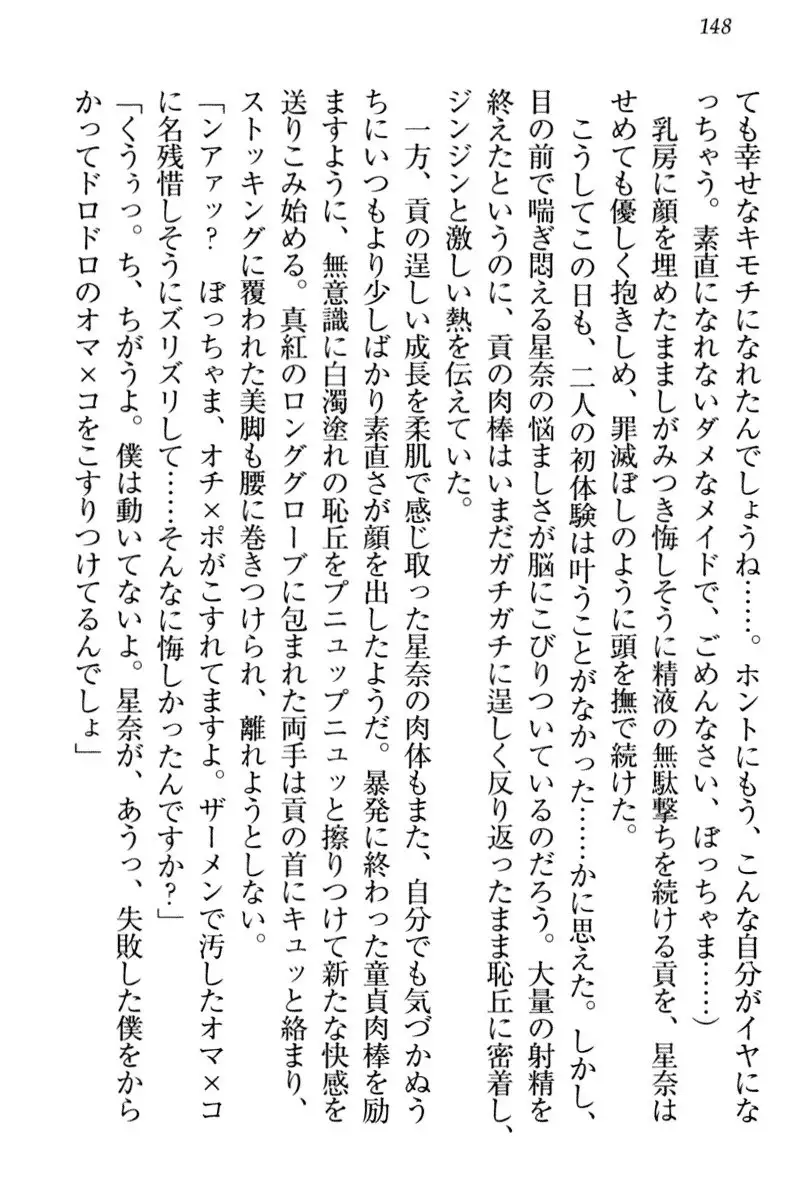 148
ても幸せなキモチになれたんでしょうね……。ホントにもう、こんな自分がイヤにな
っちゃう。素直になれないダメなメイドで、ごめんなさい、ぼっちゃま……）
　乳房に顔を埋めたまましがみつき悔しそうに精液の無駄撃ちを続ける貢を、星奈は
せめても優しく抱きしめ、罪滅ぼしのように頭を撫で続けた。
　こうしてこの日も、二人の初体験は叶うことがなかった……かに思えた。しかし、
目の前で喘ぎ悶える星奈の悩ましさが脳にこびりついているのだろう。大量の射精を
終えたというのに、貢の肉棒はいまだガチガチに逞しく反り返ったまま恥丘に密着し、
ジンジンと激しい熱を伝えていた。
　一方、貢の逞しい成長を柔肌で感じ取った星奈の肉体もまた、自分でも気づかぬう
ちにいつもより少しばかり素直さが顔を出したようだ。暴発に終わった童貞肉棒を励
ますように、無意識に白濁塗れの恥丘をプニュップニュッと擦りつけて新たな快感を
送りこみ始める。真紅のロンググローブに包まれた両手は貢の首にキュッと絡まり、
ストッキングに覆われた美脚も腰に巻きつけられ、離れようとしない。
「ンアァッ？　ぼっちゃま、オチ×ポがこすれてますよ。ザーメンで汚したオマ×コ
に名残惜しそうにズリズリして……そんなに悔しかったんですか？」
「くうぅっ。ち、ちがうよ。僕は動いてないよ。星奈が、あうっ、失敗した僕をから
かってドロドロのオマ×コをこすりつけてるんでしょ」